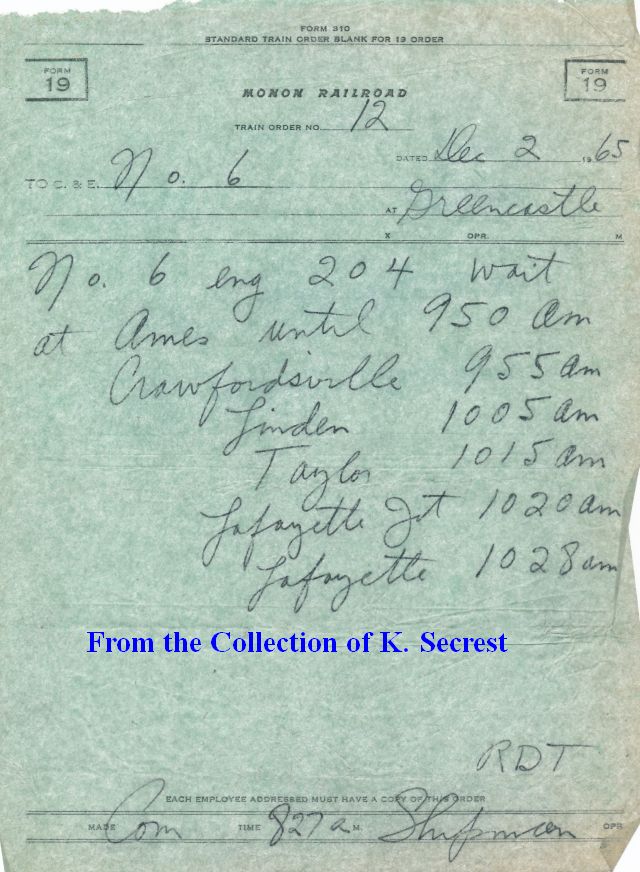 FORM 310
STANDARD TRAIN ORDER BLANK FOR 19 ORDER
FORM 19
FORM 19
MONON RAILROAD
TRAIN ORDER NO. 12
DATED Dec 2 1965
TO C. & E. No. 6
AT Greencastle
X OPR. M
No. 6 eng 204 wait
at Ames until 950 am
Crawfordsville 955 am
Linden 1005 am
Taylor 1015 am
Lafayette Jct 1020 am
Lafayette 1028 am
From the Collection of K. Secrest
RDT
EACH EMPLOYEE ADDRESSED MUST HAVE A COPY OF THIS ORDER
MADE Com TIME 827 a M. Shipman OPR